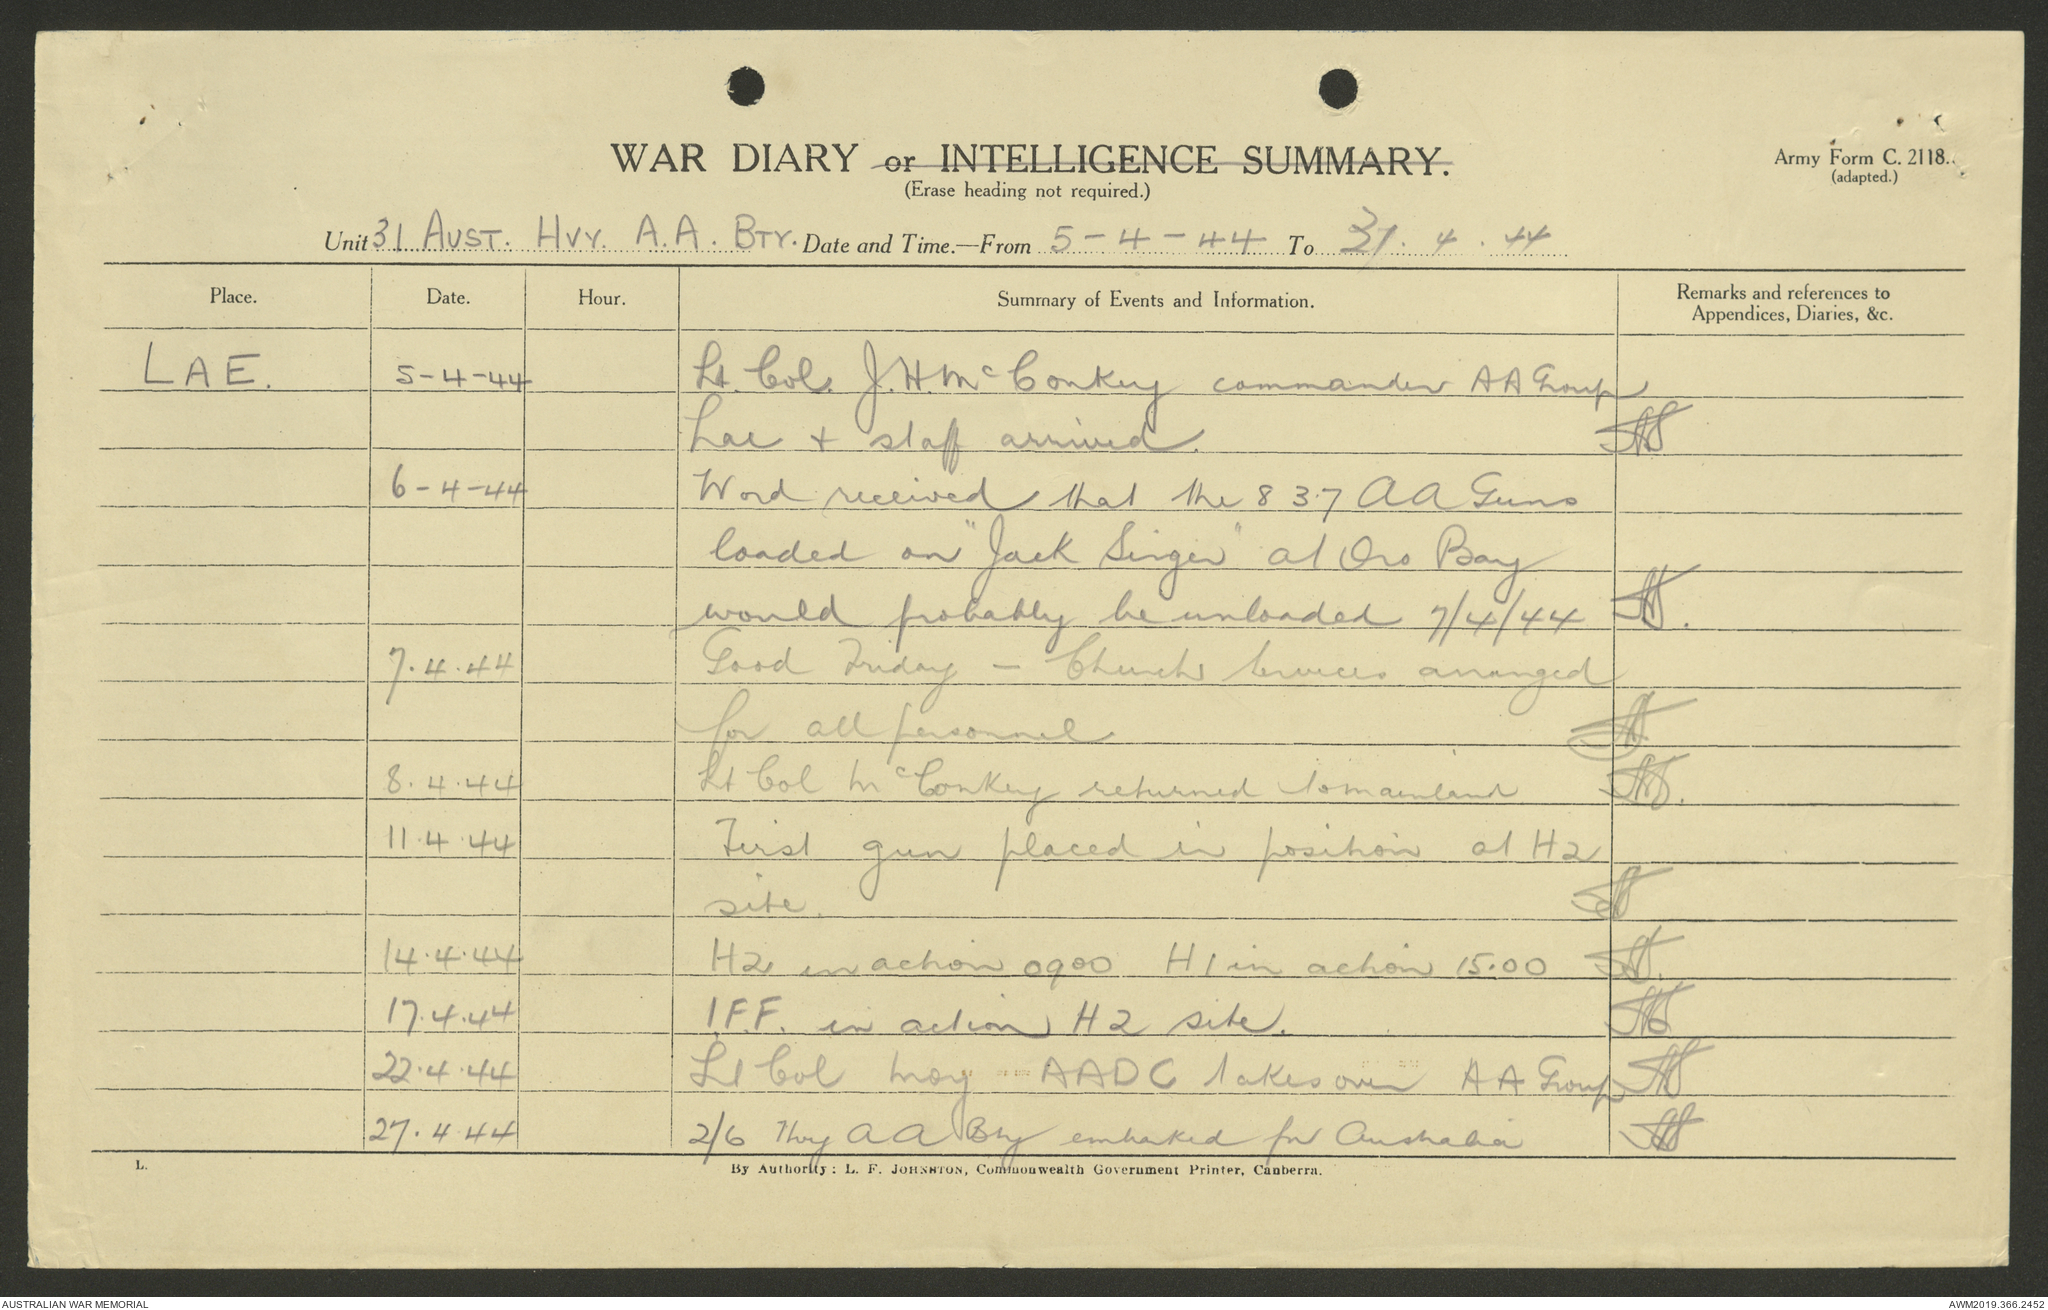 WAR DIARY or INTELLIGENCE SUMMARY.
Army Form C. 2118.
(Erase heading not required.)
(adapted.)
Unit 31 AUST. HVY. A.A. BTY. Date and Time.—From 5-4-44 To 4.44
Place. Date. Hour. Summary of Events and Information. Remarks and references to
Appendices, Diaries, &c.
LAE. 5-4-44 Lt. Col. J.H. McConkey commander AA Group
Lae + staff arrived.
6-4-44 Word received that the 8 3.7 AA Guns
loaded on "Jack Singer" at Oro Bay
would probably be unloaded 7/4/44
7.4.44 Good Friday - Church Services arranged
for all personnel
8.4.44 Lt Col McConkey returned to mainland
11.4.44 First gun placed in position at H2
site.
14.4.44 H2 in action 0900 H1 in action 15.00
17.4.44 I.F.F. in action H2 site.
22.4.44 Lt Col Moy AADC takes over AA Group
27.4.44 2/6 Hvy AA Bty embarked for Australia
L. By Authority: L. F. JOHNSTON, Commonwealth Government Printer, Canberra.
AUSTRALIAN WAR MEMORIAL AWM2019.366.2452